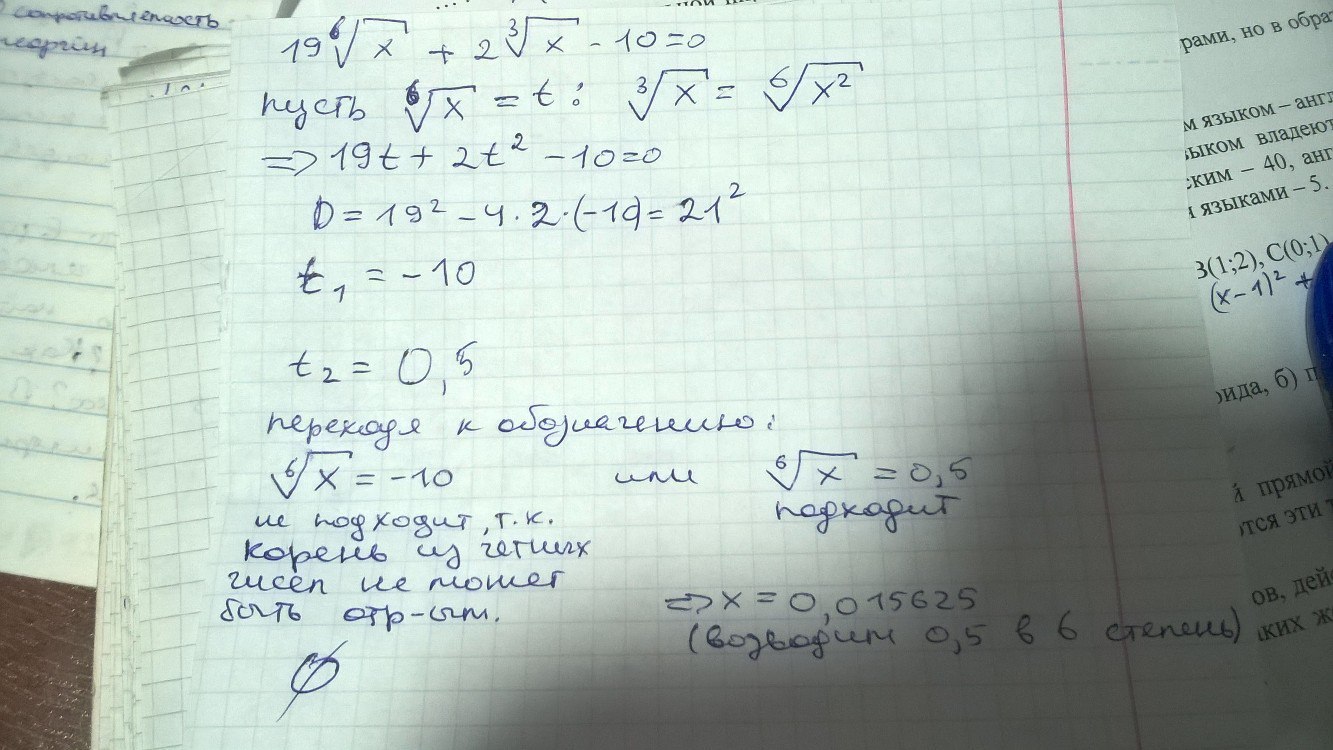 сопротивляемость
19⁶√x + 2³√x - 10 = 0
пусть ⁶√x = t : ³√x = ⁶√x²
=> 19t + 2t² - 10 = 0
D = 19² - 4 · 2 · (-10) = 21²
t₁ = -10
t₂ = 0,5
переходя к обозначению:
⁶√x = -10 или ⁶√x = 0,5
не подходит, т.к. подходит
корень из четных
чисел не может
быть отр-ым.
=> x = 0,015625
(возводим 0,5 в 6 степень)
∅
рами, но в обра
м языком – англ
зыком владеют
ским – 40, анг
и языками – 5.
В(1;2), С(0;1)
(x-1)² +
рида, б) п
й прямой
тся эти т
ов, дей
ких ж